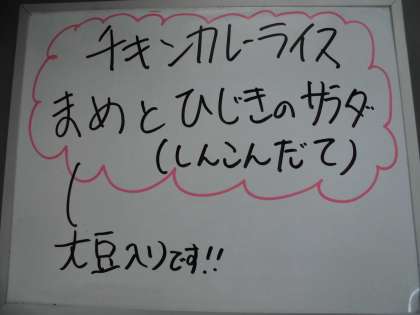 チキンカレーライス
まめとひじきのサラダ
(しんこんだて)
大豆入りです!!